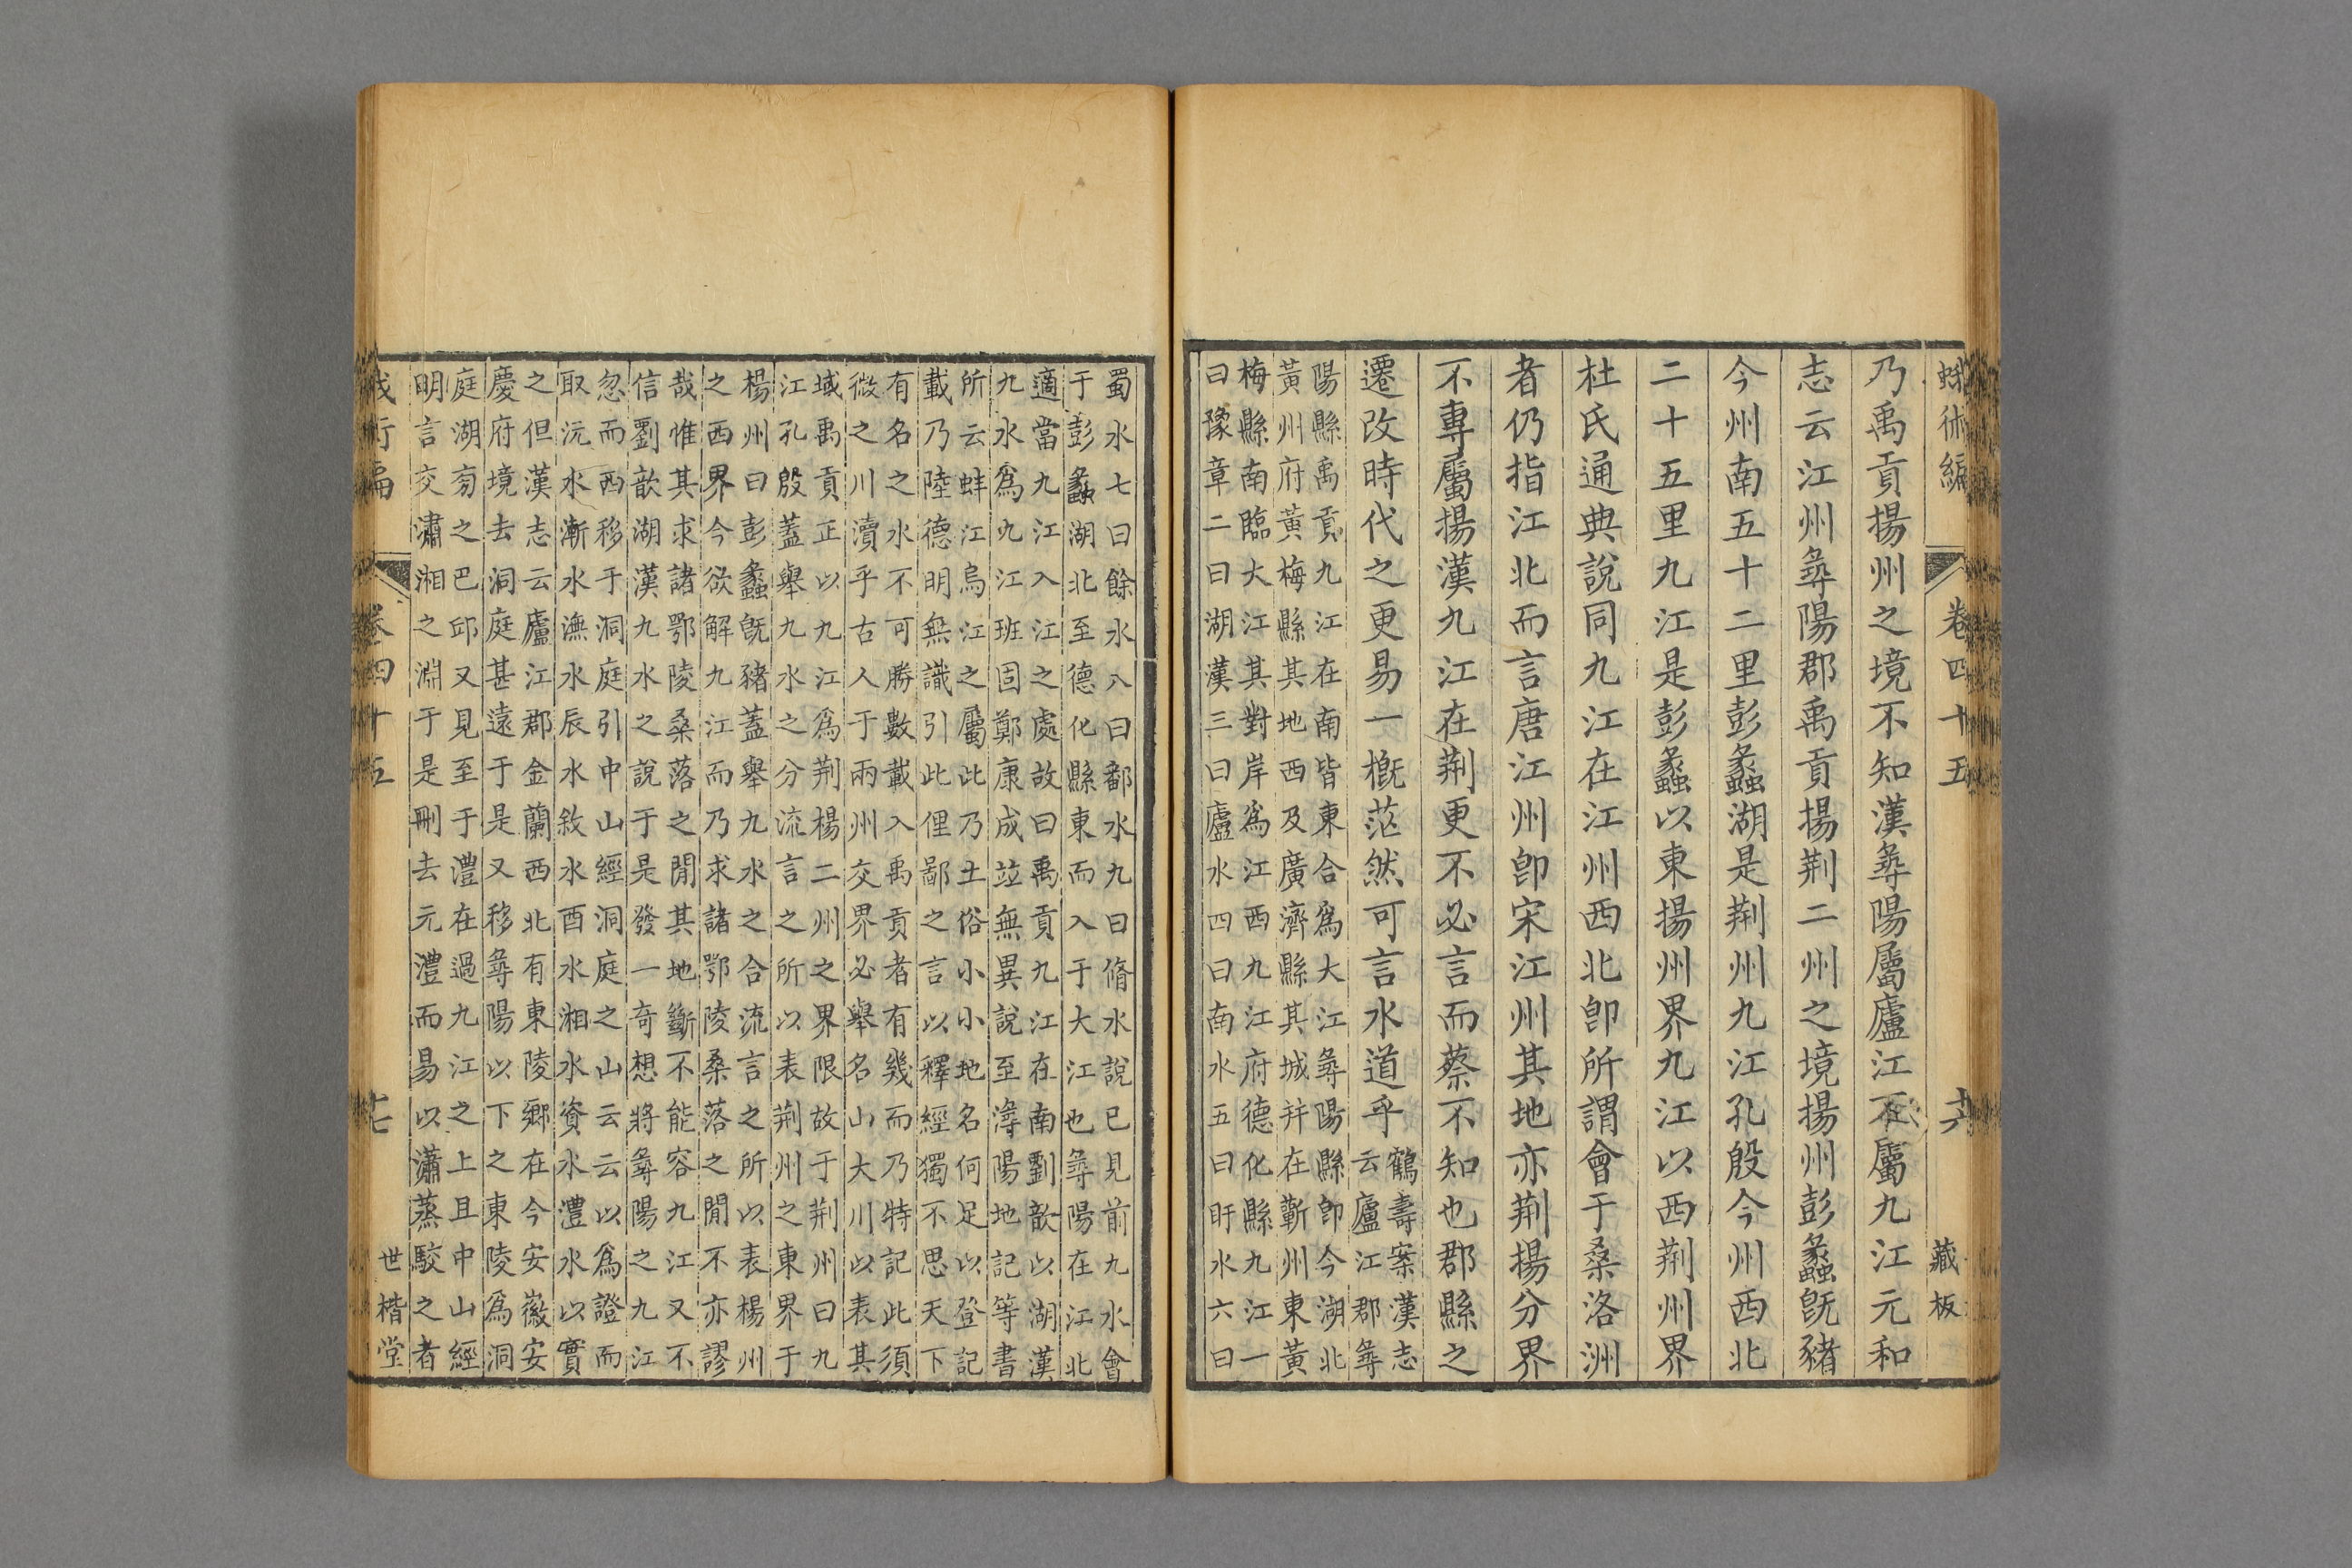 蛾術編 卷四十五 十六 藏板
乃禹貢揚州之境不知漢尋陽屬廬江不屬九江元和
志云江州尋陽郡禹貢揚荆二州之境揚州彭蠡旣豬
今州南五十二里彭蠡湖是荆州九江孔殷今州西北
二十五里九江是彭蠡以東揚州界九江以西荆州界
杜氏通典說同九江在江州西北卽所謂會于桑洛洲
者仍指江北而言唐江州卽宋江州其地亦荆揚分界
不專屬揚漢九江在荆更不必言而蔡不知也郡縣之
遷改時代之更易一槪茫然可言水道乎
鶴壽案漢志
云廬江郡尋
陽縣禹貢九江在南皆東合爲大江尋陽縣卽今湖北
黃州府黃梅縣其地西及廣濟縣其城并在蘄州東黃
梅縣南臨大江其對岸爲江西九江府德化縣九江一
曰豫章二曰湖漢三曰廬水四曰南水五曰盱水六曰
蜀水七曰餘水八曰鄱水九曰脩水說已見前九水會
于彭蠡湖北至德化縣東而入于大江也尋陽在江北
適當九江入江之處故曰禹貢九江在南劉歆以湖漢
九水爲九江班固鄭康成竝無異說至潯陽地記等書
所云蚌江烏江之屬此乃土俗小小地名何足以登記
載乃陸德明無識引此俚鄙之言以釋經獨不思天下
有名之水不可勝數載入禹貢者有幾而乃特記此須
微之川瀆乎古人于兩州交界必舉名山大川以表其
域禹貢正以九江爲荆楊二州之界限故于荆州曰九
江孔殷蓋舉九水之分流言之所以表荆州之東界于
楊州曰彭蠡旣豬蓋舉九水之合流言之所以表楊州
之西界今欲解九江而乃求諸鄂陵桑落之閒不亦謬
哉惟其求諸鄂陵桑落之閒其地斷不能容九江又不
信劉歆湖漢九水之說于是發一奇想將尋陽之九江
忽而西移于洞庭引中山經洞庭之山云云以爲證而
取沅水漸水潕水辰水敘水酉水湘水資水澧水以實
之但漢志云廬江郡金蘭西北有東陵鄉在今安徽安
慶府境去洞庭甚遠于是又移尋陽以下之東陵爲洞
庭湖旁之巴邱又見至于澧在過九江之上且中山經
明言交瀟湘之淵于是刪去元澧而易以瀟蒸駮之者
蛾術編 卷四十五 十七 世楷堂